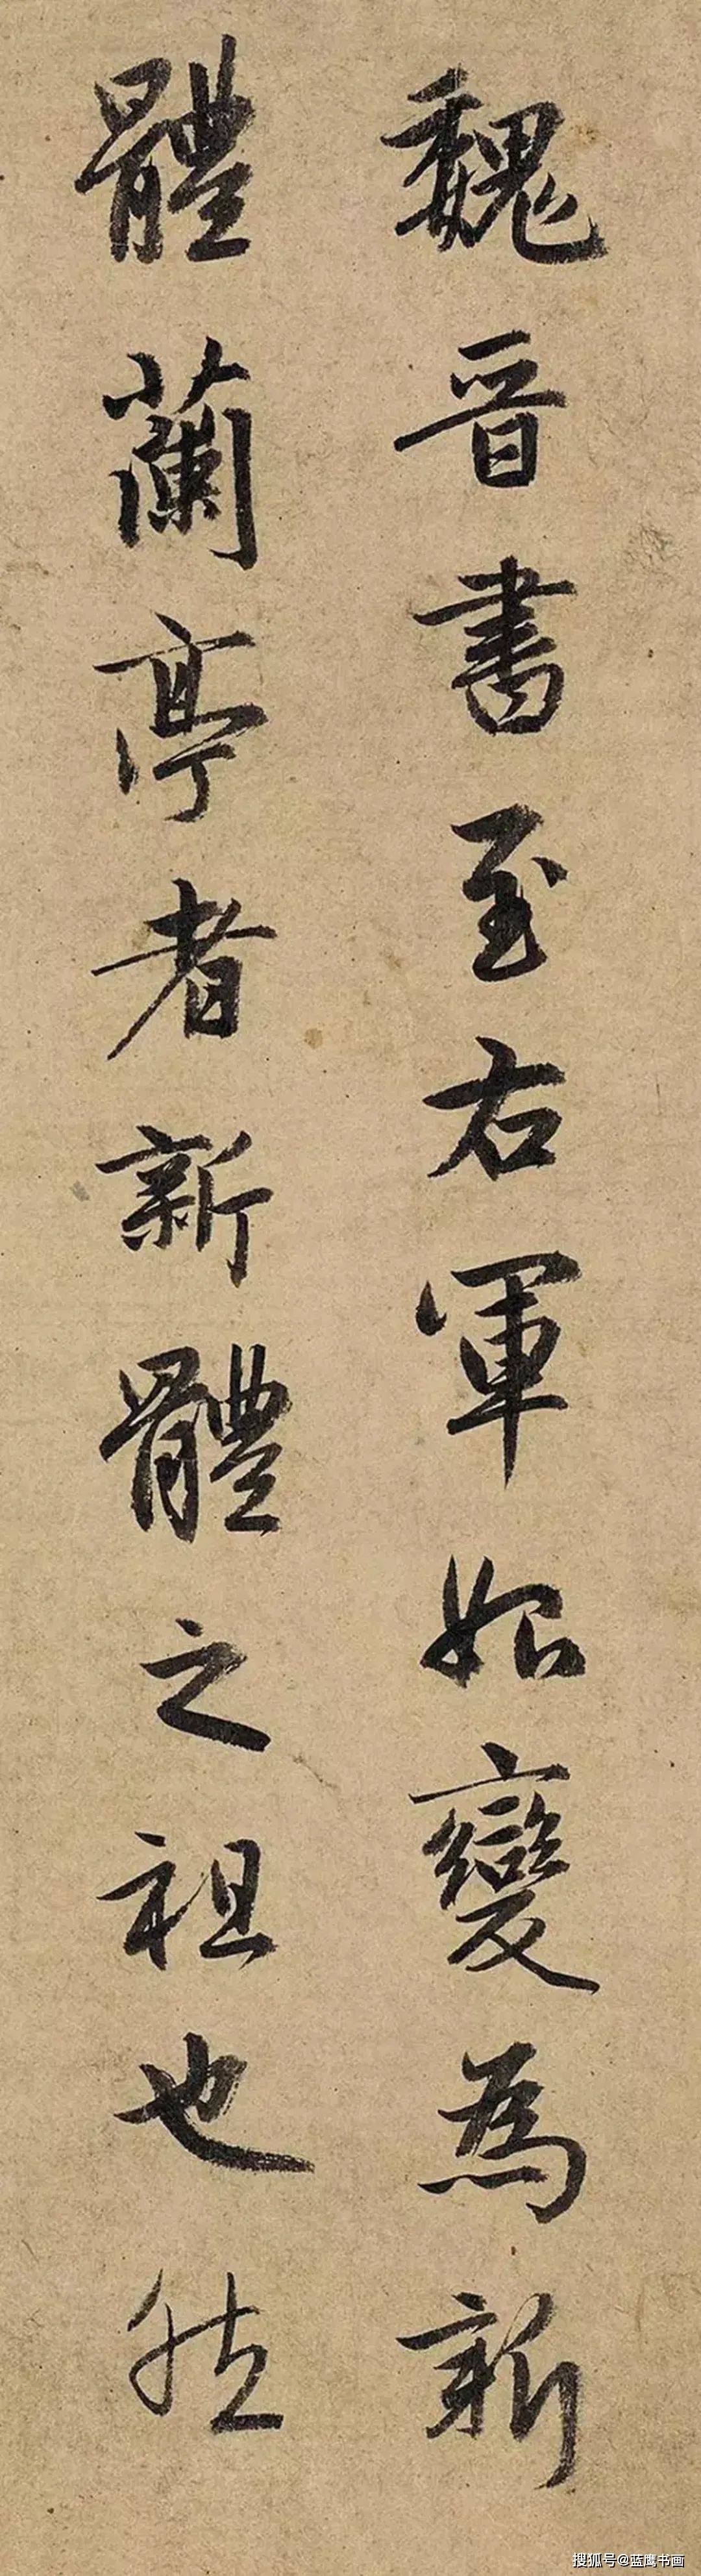 魏晋書至右軍始變為新
體蘭亭者新體之祖也然
搜狐号@蓝鹰书画